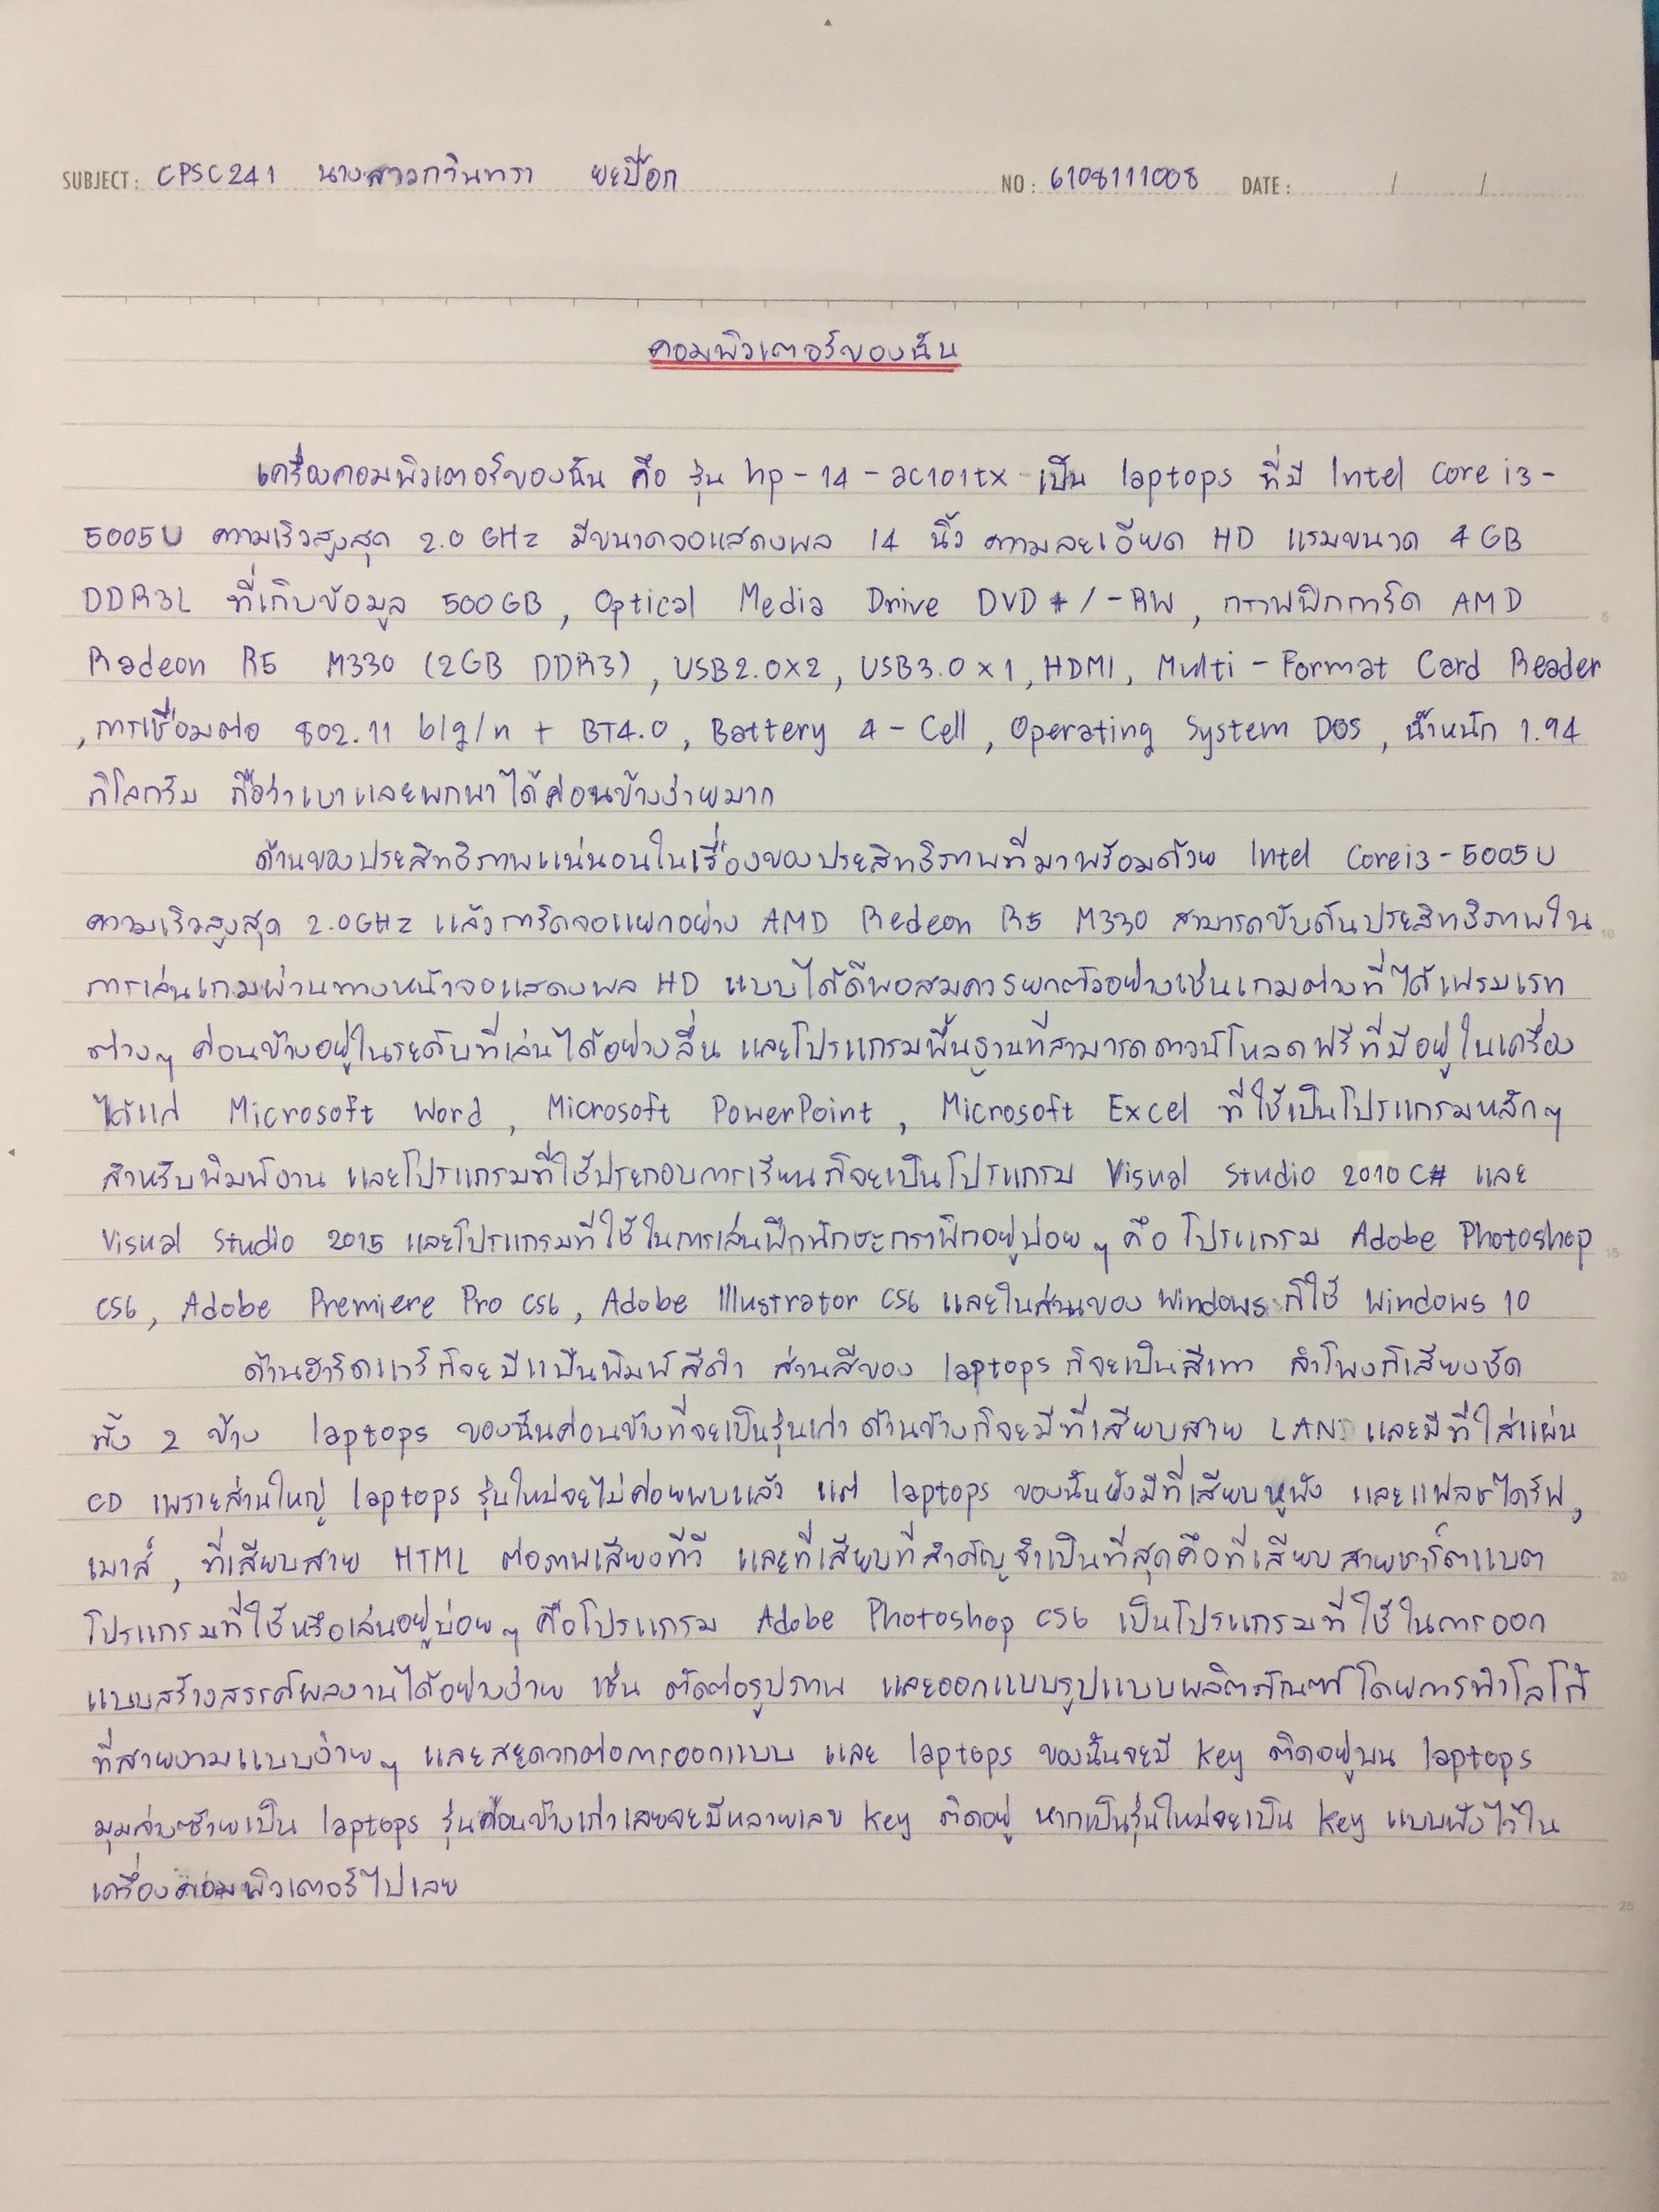 SUBJECT: CPSC241 นางสาวกวินทรา ยะป๊อก NO: 6108111008 DATE: / /
คอมพิวเตอร์ของฉัน
เครื่องคอมพิวเตอร์ของฉัน คือ รุ่น hp-14-ac101tx เป็น laptops ที่มี Intel Core i3-
5005U ความเร็วสูงสุด 2.0 GHz มีขนาดจอแสดงผล 14 นิ้ว ความละเอียด HD แรมขนาด 4GB
DDR3L ที่เก็บข้อมูล 500GB, Optical Media Drive DVD+/-RW, กราฟฟิกการ์ด AMD
Radeon R5 M330 (2GB DDR3), USB2.0x2, USB3.0x1, HDMI, Multi-Format Card Reader
,การเชื่อมต่อ 802.11 b/g/n + BT4.0, Battery 4-Cell, Operating System DOS, น้ำหนัก 1.94
กิโลกรัม ถือว่าเบาและพกพาได้ค่อนข้างง่ายมาก
ด้านของประสิทธิภาพแน่นอนในเรื่องของประสิทธิภาพที่มาพร้อมด้วย Intel Corei3-5005U
ความเร็วสูงสุด 2.0GHz แล้วการ์ดจอแยกอย่าง AMD Redeon R5 M330 สามารถขับดันประสิทธิภาพใน
การเล่นเกมผ่านทางหน้าจอแสดงผล HD แบบได้ดีพอสมควรยกตัวอย่างเช่นเกมต่างที่ได้เฟรมเรท
ต่างๆ ค่อนข้างอยู่ในระดับที่เล่นได้อย่างลื่น และโปรแกรมพื้นฐานที่สามารถดาวน์โหลดฟรีที่มีอยู่ในเครื่อง
ได้แก่ Microsoft Word, Microsoft PowerPoint, Microsoft Excel ที่ใช้เป็นโปรแกรมหลักๆ
สำหรับพิมพ์งาน และโปรแกรมที่ใช้ประกอบการเรียนก็จะเป็นโปรแกรม Visual Studio 2010 C# และ
Visual Studio 2015 และโปรแกรมที่ใช้ในการเล่นฝึกทักษะกราฟิกอยู่บ่อยๆ คือ โปรแกรม Adobe Photoshop
CS6, Adobe Premiere Pro CS6, Adobe Illustrator CS6 และในส่วนของ Windows ก็ใช้ Windows 10
ด้านฮาร์ดแวร์ก็จะมีแป้นพิมพ์สีดำ ส่วนสีของ laptops ก็จะเป็นสีเทา ลำโพงก็เสียงชัด
ทั้ง 2 ข้าง laptops ของฉันค่อนข้างที่จะเป็นรุ่นเก่า ด้านข้างก็จะมีที่เสียบสาย LAN และมีที่ใส่แผ่น
CD เพราะส่วนใหญ่ laptops รุ่นใหม่จะไม่ค่อยพบแล้ว แต่ laptops ของฉันยังมีที่เสียบหูฟัง และแฟลชไดร์ฟ,
เมาส์, ที่เสียบสาย HTML ต่อภาพเสียงทีวี และที่เสียบที่สำคัญจำเป็นที่สุดคือที่เสียบสายชาร์ตแบต
โปรแกรมที่ใช้หรือเล่นอยู่บ่อยๆ คือโปรแกรม Adobe Photoshop CS6 เป็นโปรแกรมที่ใช้ในการออก
แบบสร้างสรรค์ผลงานได้อย่างง่าย เช่น ตัดต่อรูปภาพ และออกแบบรูปแบบผลิตภัณฑ์โดยการทำโลโก้
ที่สวยงามแบบง่ายๆ และสะดวกต่อการออกแบบ และ laptops ของฉันจะมี key ติดอยู่บน laptops
มุมล่างซ้ายเป็น laptops รุ่นค่อนข้างเก่าเลยจะมีหลายเลข key ติดอยู่ หากเป็นรุ่นใหม่จะเป็น key แบบฝังไว้ใน
เครื่องคอมพิวเตอร์ไปเลย
5
10
15
20
25